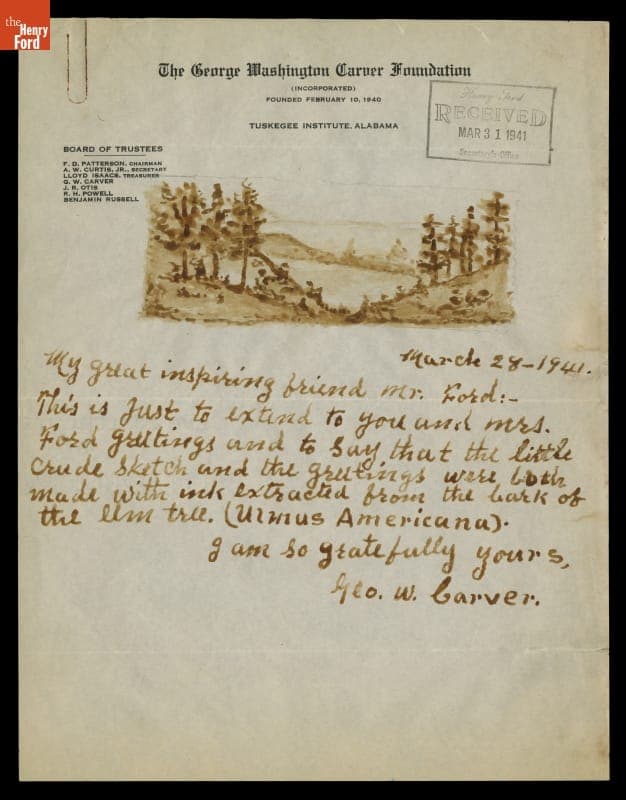 the
Henry
Ford
The George Washington Carver Foundation
(INCORPORATED)
FOUNDED FEBRUARY 10, 1940
TUSKEGEE INSTITUTE, ALABAMA
Henry Ford
RECEIVED
MAR 31 1941
Secretary's Office
BOARD OF TRUSTEES
F. D. PATTERSON, CHAIRMAN
A. W. CURTIS, JR., SECRETARY
LLOYD ISAACS, TREASURER
G. W. CARVER
J. R. OTIS
R. H. POWELL
BENJAMIN RUSSELL
March 28-1941.
My great inspiring friend Mr. Ford:-
This is just to extend to you and mrs.
Ford greetings and to say that the little
crude sketch and the greetings were both
made with ink extracted from the bark of
the elm tree. (Ulmus Americana).
I am so gratefully yours,
Geo. W. Carver.